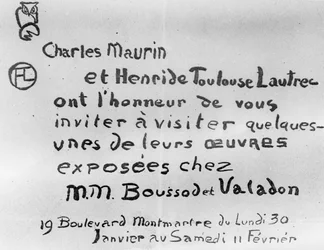 Charles Maurin
et Henri de Toulouse Lautrec
ont l'honneur de vous
inviter à visiter quelques-
unes de leurs œuvres
exposées chez
M.M. Boussod et Valadon
19 Boulevard Montmartre du Lundi 30
Janvier au Samedi 11 Février